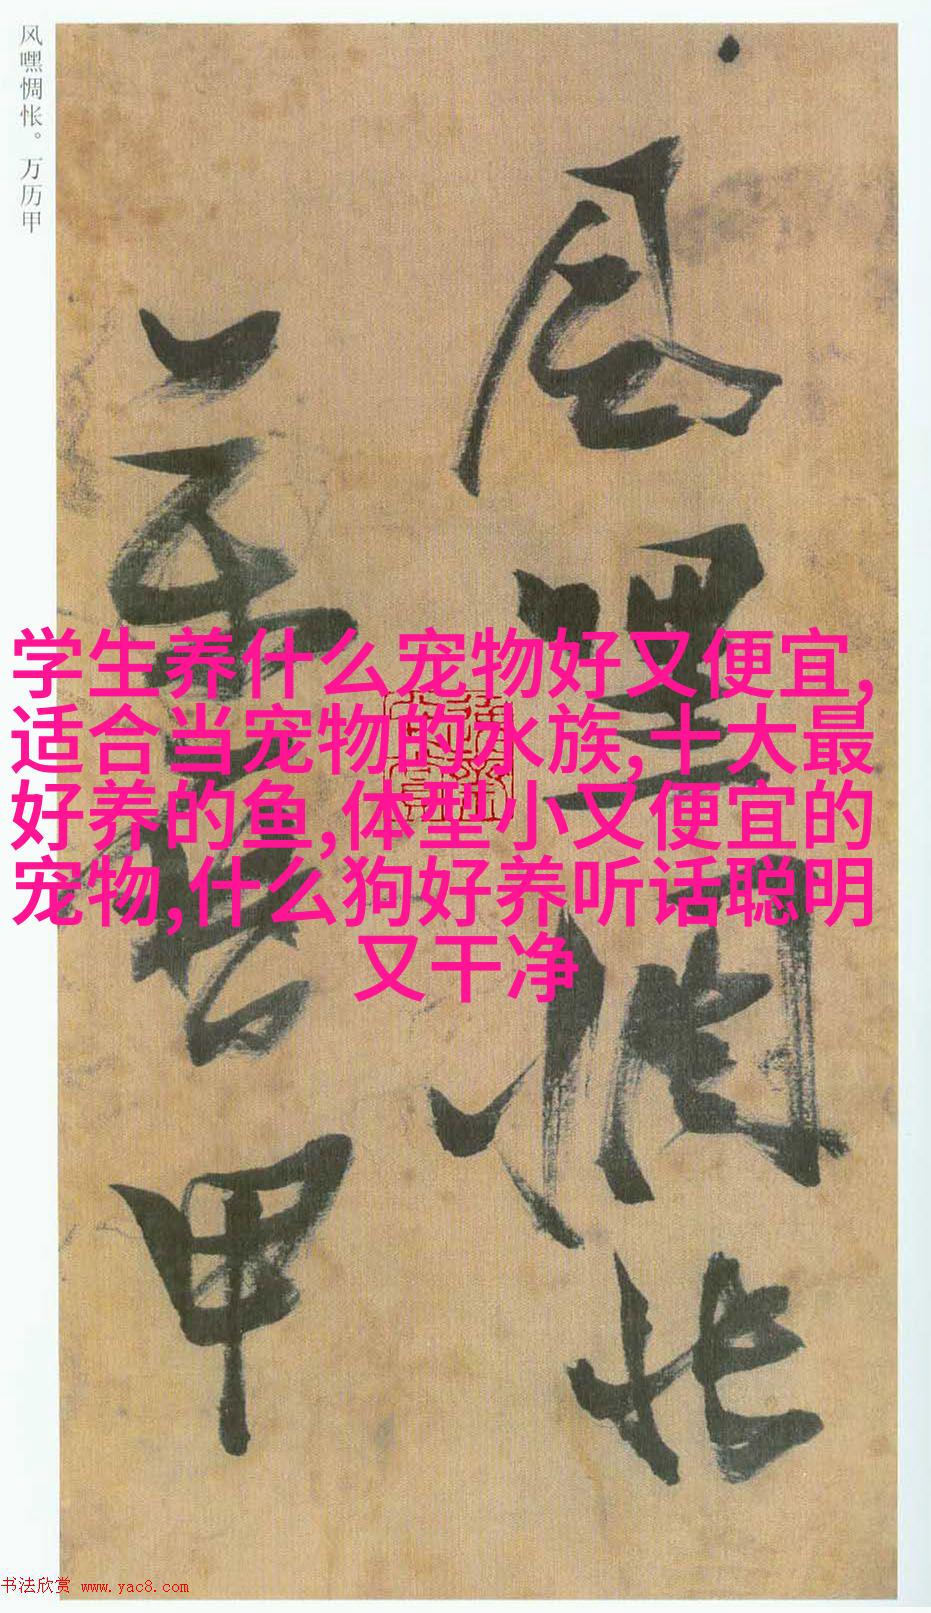 风嘿惆怅。万历甲
学生养什么宠物好又便宜,
适合当宠物的水族,十大最
好养的鱼,体型小又便宜的
宠物,什么狗好养听话聪明
又干净
风嘿惆怅
万历甲
书法欣赏 www.yac8.com